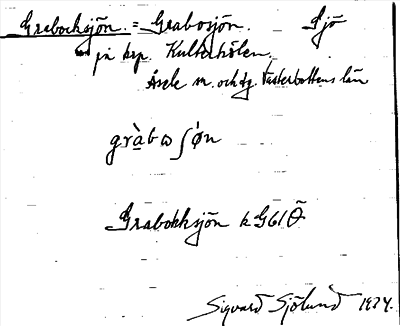 Grabocksjön. = Grabosjön. Sjö
på krp. Kultsholen.
Åsele sn. och tg. Västerbottens län
gràbɷʃøn
Grabokksjön k G61 Ö
Sigvard Sjölund 1934.